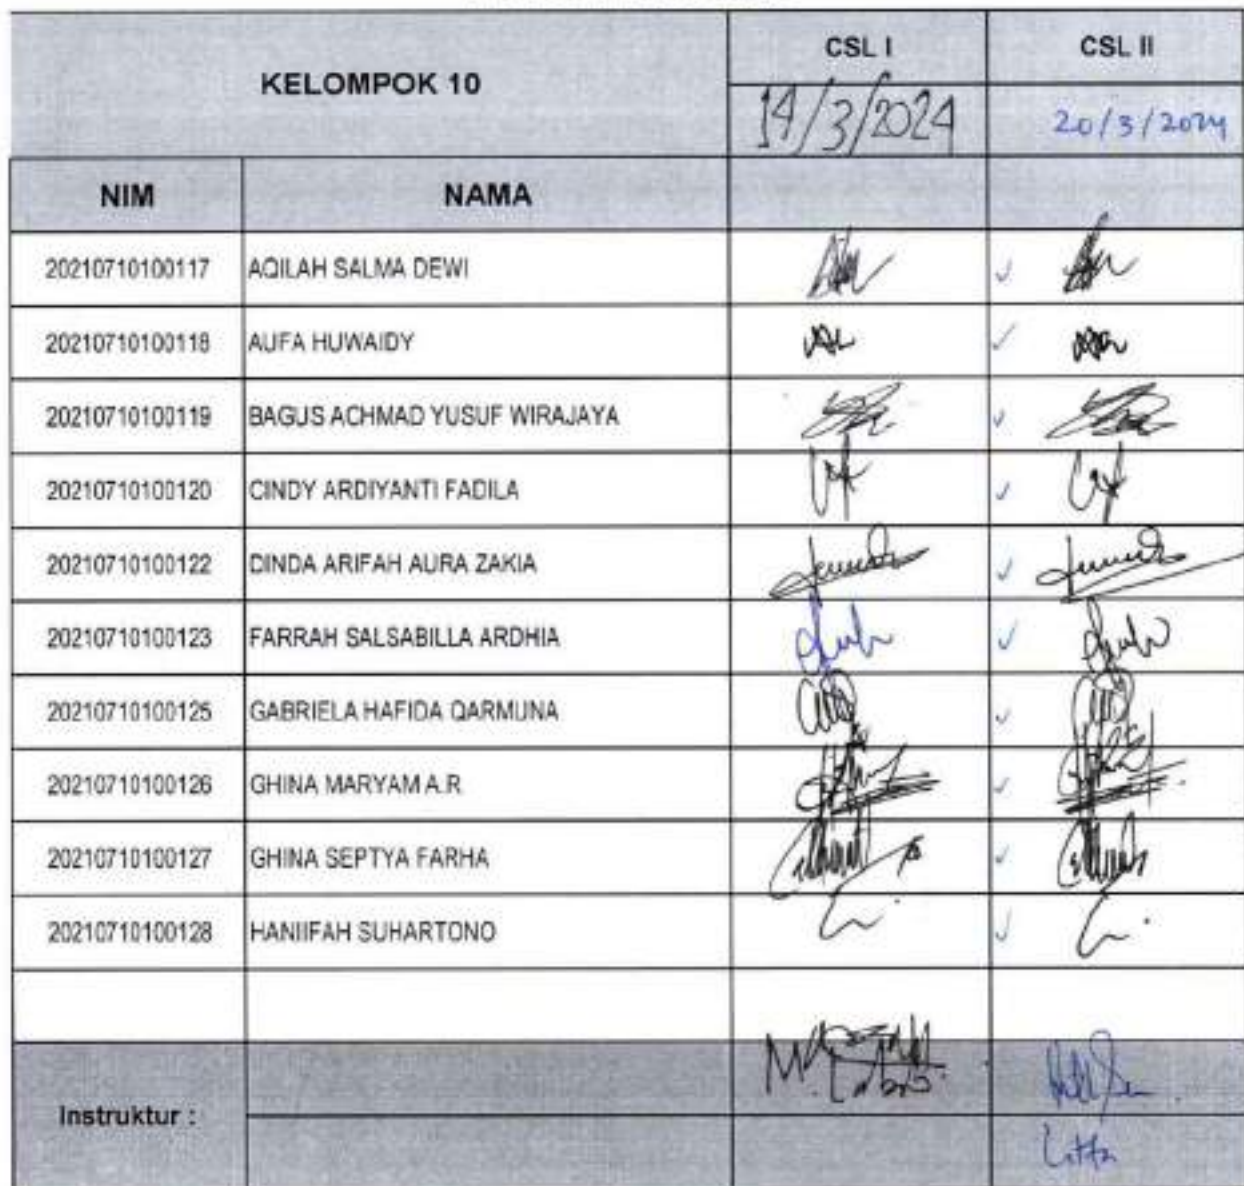 CSL I CSL II
KELOMPOK 10
14/3/2024 20/3/2024
NIM NAMA
20210710100117 AQILAH SALMA DEWI
20210710100118 AUFA HUWAIDY
20210710100119 BAGUS ACHMAD YUSUF WIRAJAYA
20210710100120 CINDY ARDIYANTI FADILA
20210710100122 DINDA ARIFAH AURA ZAKIA
20210710100123 FARRAH SALSABILLA ARDHIA
20210710100125 GABRIELA HAFIDA QARMUNA
20210710100126 GHINA MARYAM A.R
20210710100127 GHINA SEPTYA FARHA
20210710100128 HANIIFAH SUHARTONO
Instruktur :